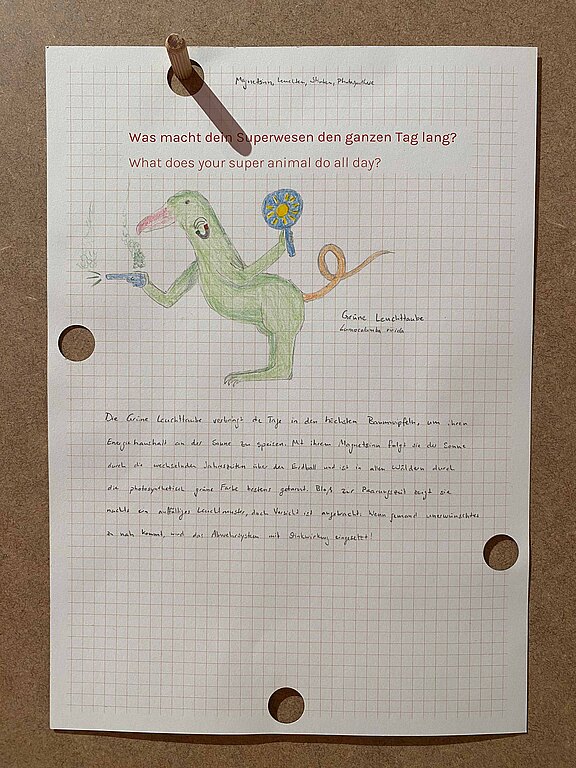 Magnetsinn, Leuchten, Stinken, Photosynthese
Was macht dein Superwesen den ganzen Tag lang?
What does your super animal do all day?
Grüne Leuchttaube
Die Grüne Leuchttaube verbringt die Tage in den höchsten Baumwipfeln, um ihren
Energiehaushalt an der Sonne zu speisen. Mit ihrem Magnetsinn folgt sie der Sonne
durch die wechselnden Jahreszeiten über den Erdball und ist in allen Wäldern durch
die photosynthetisch grüne Farbe bestens getarnt. Bloß zur Paarungszeit zeigt sie
nachts ein auffälliges Leuchtmuster, doch Vorsicht ist angebracht. Wenn jemand unerwünschtes
zu nah kommt, wird das Abwehrsystem mit Stinkwirkung eingesetzt!